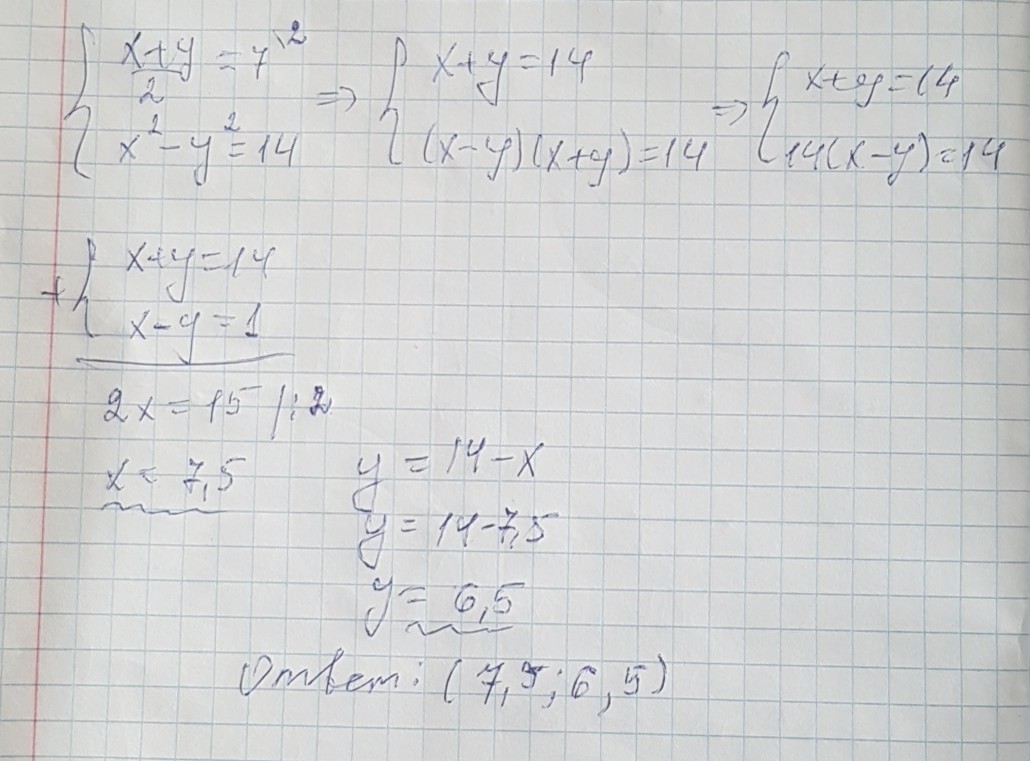 { (x+y)/2 = 7 \2 ⇒ { x+y=14 ⇒ { x+y=14
x²-y²=14 (x-y)(x+y)=14 14(x-y)=14
+ { x+y=14
x-y=1
2x=15 /:2
x= 7,5 y = 14-x
y= 14-7,5
y= 6,5
Ответ: (7,5;6,5)